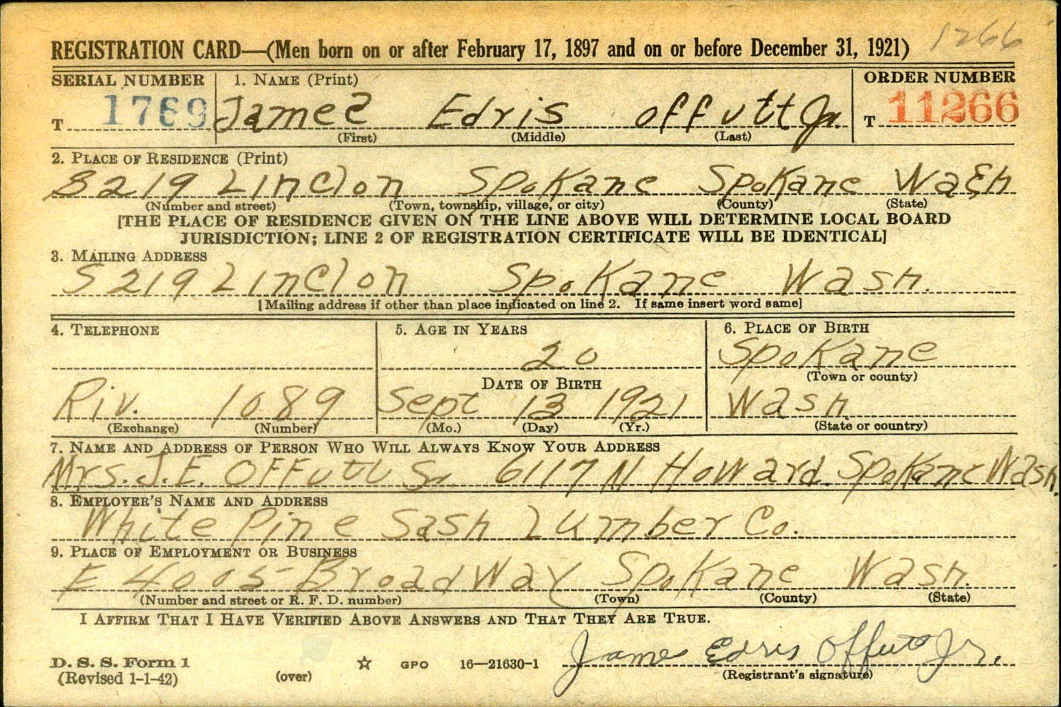 REGISTRATION CARD—(Men born on or after February 17, 1897 and on or before December 31, 1921) 1266
SERIAL NUMBER 1. NAME (Print) ORDER NUMBER
T 1769 James Edris Offutt Jr. T 11266
(First) (Middle) (Last)
2. PLACE OF RESIDENCE (Print)
S219 Linclon Spokane Spokane Wash
(Number and street) (Town, township, village, or city) (County) (State)
[THE PLACE OF RESIDENCE GIVEN ON THE LINE ABOVE WILL DETERMINE LOCAL BOARD
JURISDICTION; LINE 2 OF REGISTRATION CERTIFICATE WILL BE IDENTICAL]
3. MAILING ADDRESS
S219 Linclon Spokane Wash.
[Mailing address if other than place indicated on line 2. If same insert word same]
4. TELEPHONE 5. AGE IN YEARS 6. PLACE OF BIRTH
20 Spokane
DATE OF BIRTH (Town or county)
Riv. 1089 Sept 13 1921 Wash.
(Exchange) (Number) (Mo.) (Day) (Yr.) (State or country)
7. NAME AND ADDRESS OF PERSON WHO WILL ALWAYS KNOW YOUR ADDRESS
Mrs. J.E. Offutt Sr 6117 N Howard Spokane Wash
8. EMPLOYER'S NAME AND ADDRESS
White Pine Sash Lumber Co.
9. PLACE OF EMPLOYMENT OR BUSINESS
E 4005 Broadway Spokane Wash.
(Number and street or R. F. D. number) (Town) (County) (State)
I AFFIRM THAT I HAVE VERIFIED ABOVE ANSWERS AND THAT THEY ARE TRUE.
D. S. S. Form 1 ☆ GPO 16—21630-1 James Edris Offutt Jr.
(Revised 1-1-42) (over) (Registrant's signature)